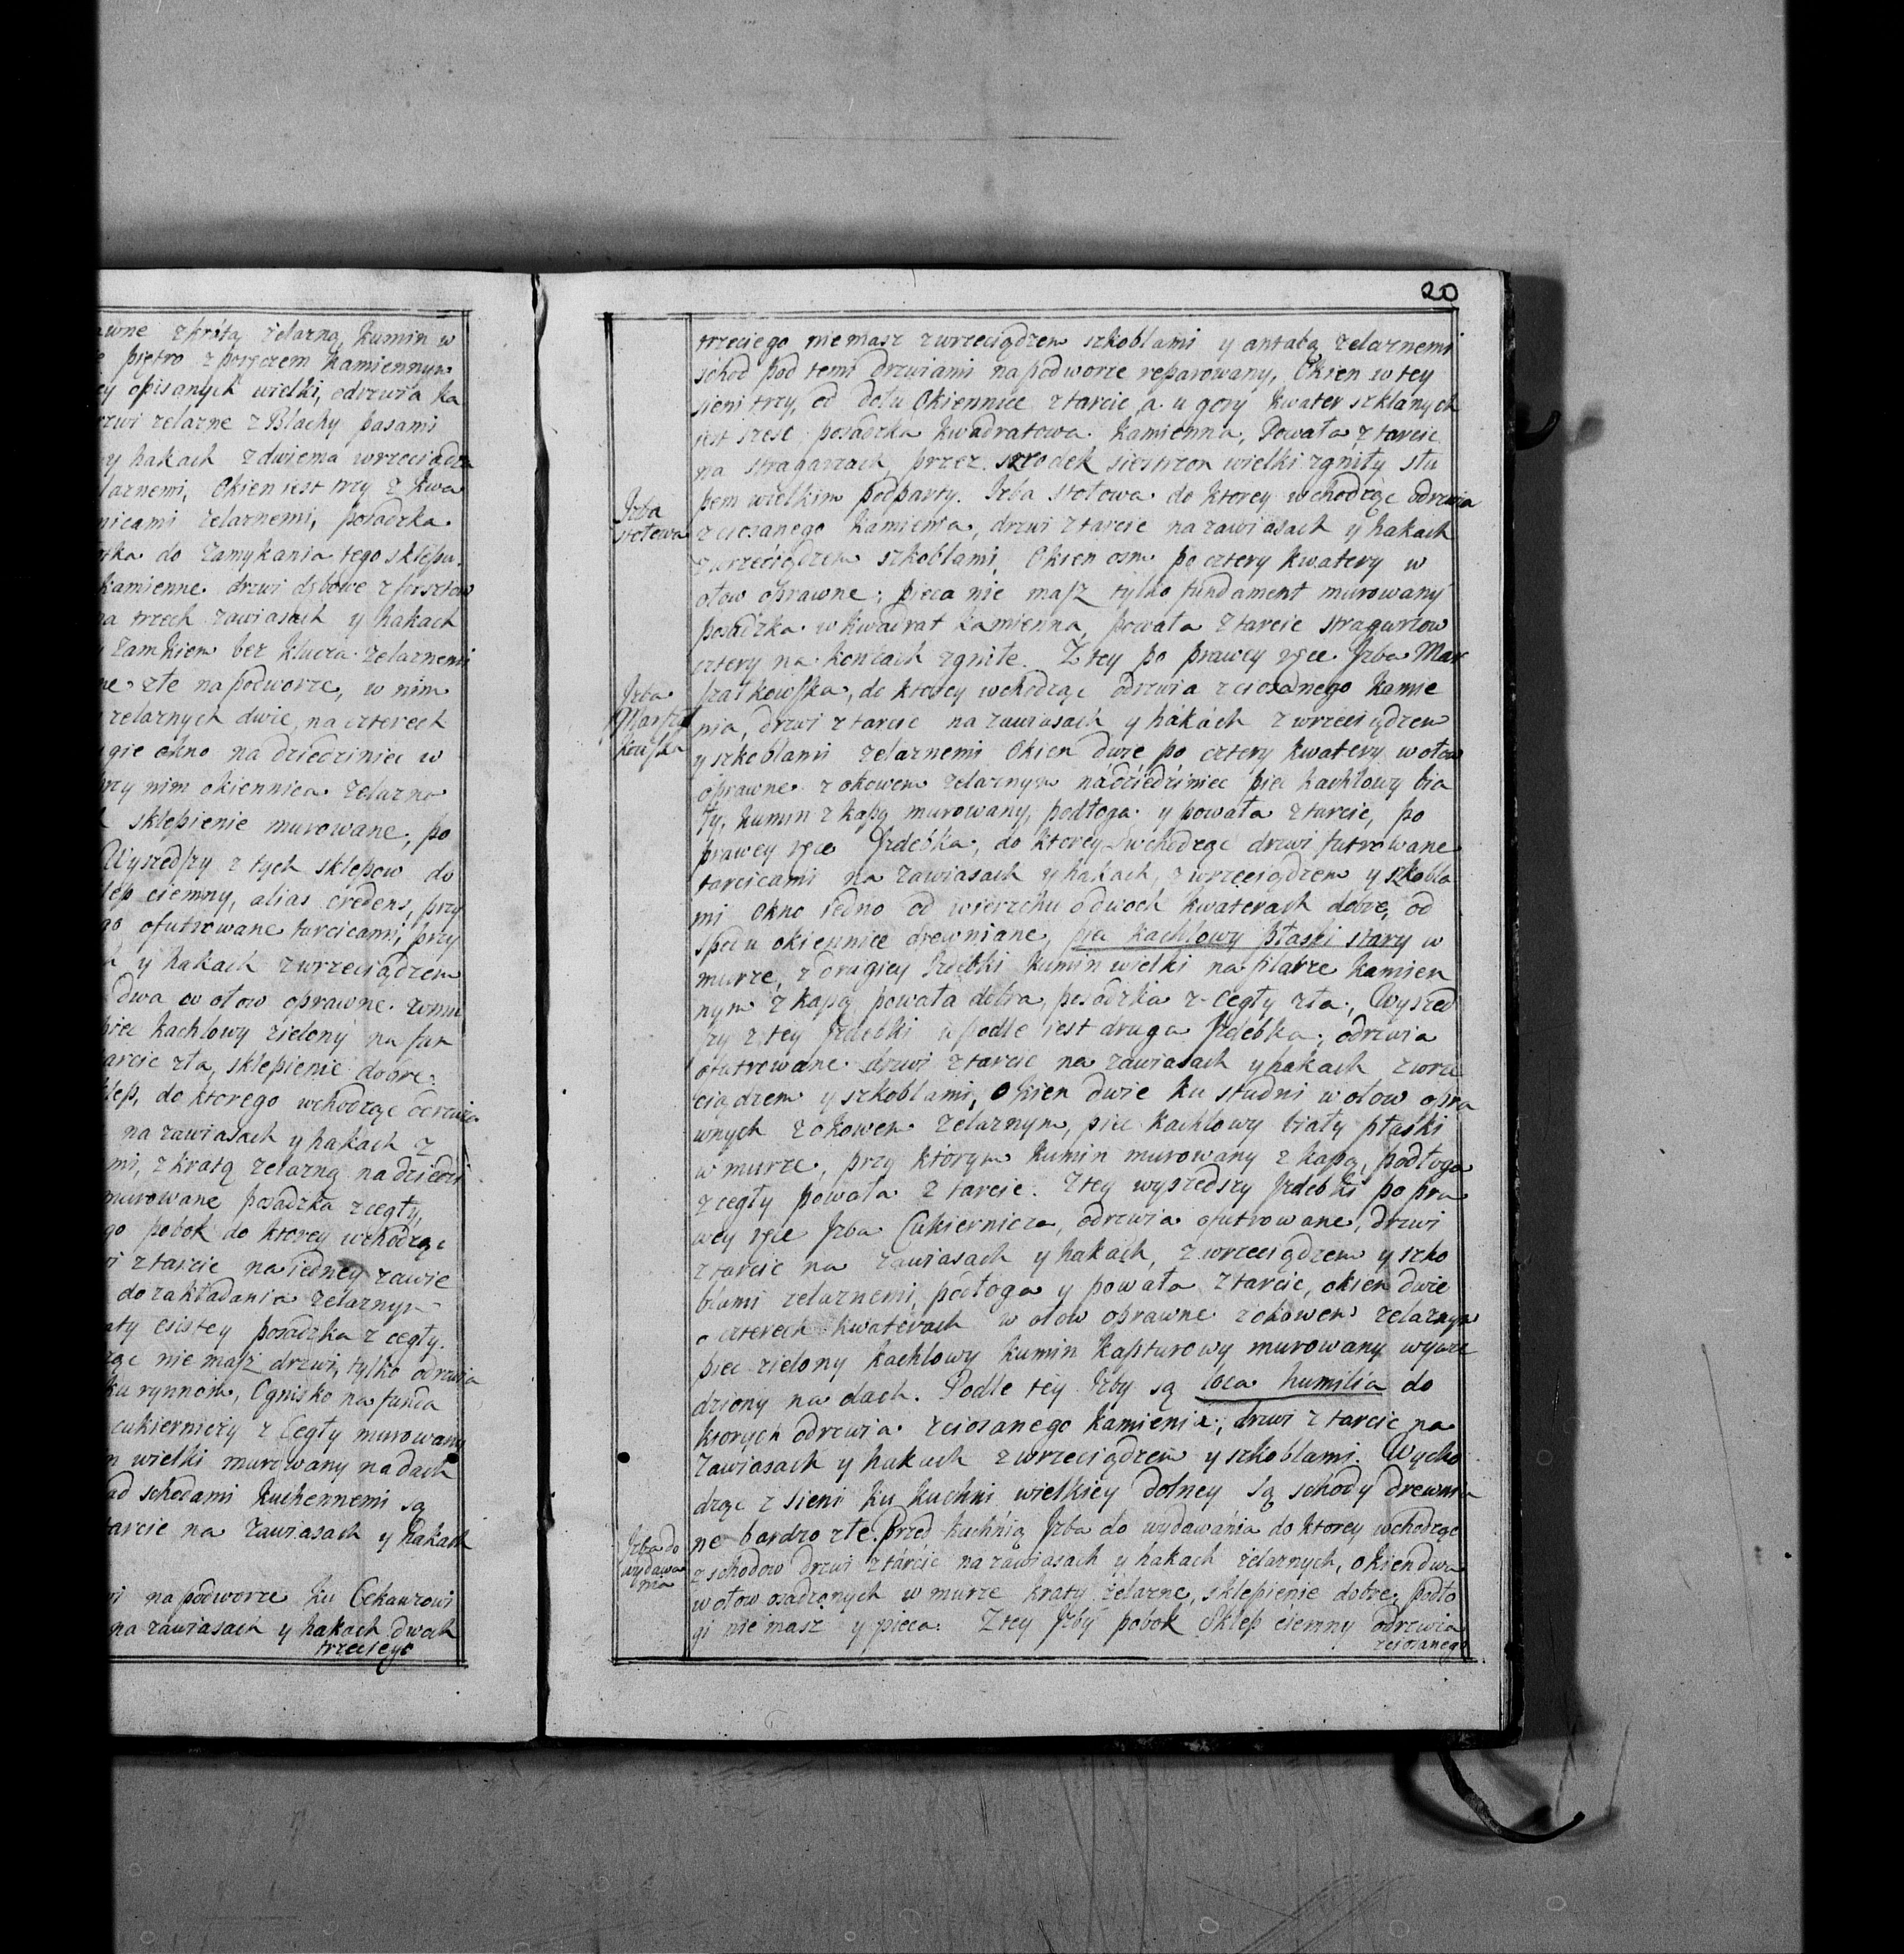 awne z kratą żelazną, kumin w
piętro z poręczem kamiennym
opisanych wielki, odrzwia ka
drzwi zelazne z Blachy pasami
y hakach z dwiema wrzeciądza
laznemi, Okien iest trzy z kwa
nicami zelaznemi, posadzka
do zamykania tego sklepu.
kamienne drzwi dębowe z forsztow
na trzech zawiasach y hakach
zamkiem bez klucza zelaznemi
złe na podworze, w nim
zelaznych dwie, na czterech
gie okno na dziedziniec w
przy nim okiennica zelazna
sklepienie murowane, po
Wyszedszy z tych sklepow do
lep ciemny, alias credens, przy
go ofutrowane tarcicami, przy
y hakach z wrzeciądzem
dwa w ołow oprawne
piec kachlowy zielony na fun
tarcic zła, sklepienie dobre.
lep, do ktorego wchodząc odrzwia
na zawiasach y hakach z
mi, z kratą zelazną na dziedzi
murowane posadzka z cegły,
go pobok do ktorey wchodząc
z tarcic na iedney zawie
do zakładania zelaznym
posadzka z cegły.
ząc nie masz drzwi, tylko odrzwia
ku rynnom, Ognisko na funda
cukierniczy z Cegły murowany
wielki murowany na dach
ad schodami kuchennemi są
tarcic na zawiasach y hakach
na podworze ku Cekauzowi
na zawiasach y hakach dwoch
trzeciego
20
trzeciego nie masz z wrzeciądzem szkoblami y antabą zelaznemi
schod pod temi drzwiami na podworze reparowany, Okien w tey
sieni trzy, od dołu Okiennice z tarcic, a u gory kwater szklanych
iest szesc, posadzka kwadratowa kamienna, Powała z tarcic
na stragarzach, przez szrodek siestrzon wielki zgniły słu
pem wielkim podparty. Izba stołowa do ktorey wchodząc odrzwia
Izba
stołowa
z ciosanego kamienia, drzwi z tarcic na zawiasach y hakach
z wrzeciądzem szkoblami, Okien osm po cztery kwatery w
ołow oprawne, pieca nie masz tylko fundament murowany
posadzka w kwadrat kamienna, powała z tarcic stragarzow
cztery na koncach zgniłe. Z tey po prawey ręce Izba Mar
Izba
Marszał
kowska
szałkowska, do ktorey wchodząc odrzwia z ciosanego kamie
nia, drzwi z tarcic na zawiasach y hakach z wrzeciądzem
y szkoblami zelaznemi Okien dwie po cztery kwatery w ołow
oprawne z okowem zelaznym na dziedziniec piec kachlowy bia
ły, kumin z kapą murowany, podłoga y powała z tarcic, po
prawey ręce Izdebka, do ktorey wchodząc drzwi futrowane
tarcicami na zawiasach y hakach, z wrzeciądzem y szkobla
mi Okno iedno od wierzchu o dwoch kwaterach dobre, od
spodu okiennice drewniane, piec kachlowy płaski stary w
murze, z drugiey Izdebki kumin wielki na filarze kamien
nym z kapą powała dobra, posadzka z cegły zła, Wyszed
szy z tey Izdebki w podle iest druga Izdebka, odrzwia
ofutrowane drzwi z tarcic na zawiasach y hakach z wrze
ciądzem y szkoblami, Okien dwie ku studni w ołow opra
wnych z okowem zelaznym, piec kachlowy biały płaski
w murze, przy ktorym kumin murowany z kapą, podłoga
z cegły powała z tarcic. Z tey wyszedszy Izdebki po pra
wey ręce Izba Cukiernicza, odrzwia ofutrowane, drzwi
z tarcic na zawiasach y hakach, z wrzeciądzem y szko
blami zelaznemi, podłoga y powała z tarcic, okien dwie
o czterech kwaterach w ołow oprawne z okowem zelaznym
piec zielony kachlowy kumin kapturowy murowany wywie
dziony na dach. Podle tey Izby są loca humilia do
ktorych odrzwia z ciosanego kamienia, drzwi z tarcic na
zawiasach y hakach z wrzeciądzem y szkoblami. Wycho
dząc z sieni ku kuchni wielkiey dolney są schody drewnia
ne bardzo złe. Przed kuchnią Izba do wydawania do ktorey wchodząc
Izba do
wydawa
nia
z schodow drzwi z tarcic na zawiasach y hakach żelaznych, okien dwa
w ołow osadzonych w murze kraty żelazne, sklepienie dobre, podło
gi nie masz y pieca. Z tey Izby pobok Sklep ciemny odrzwia
z ciosanego